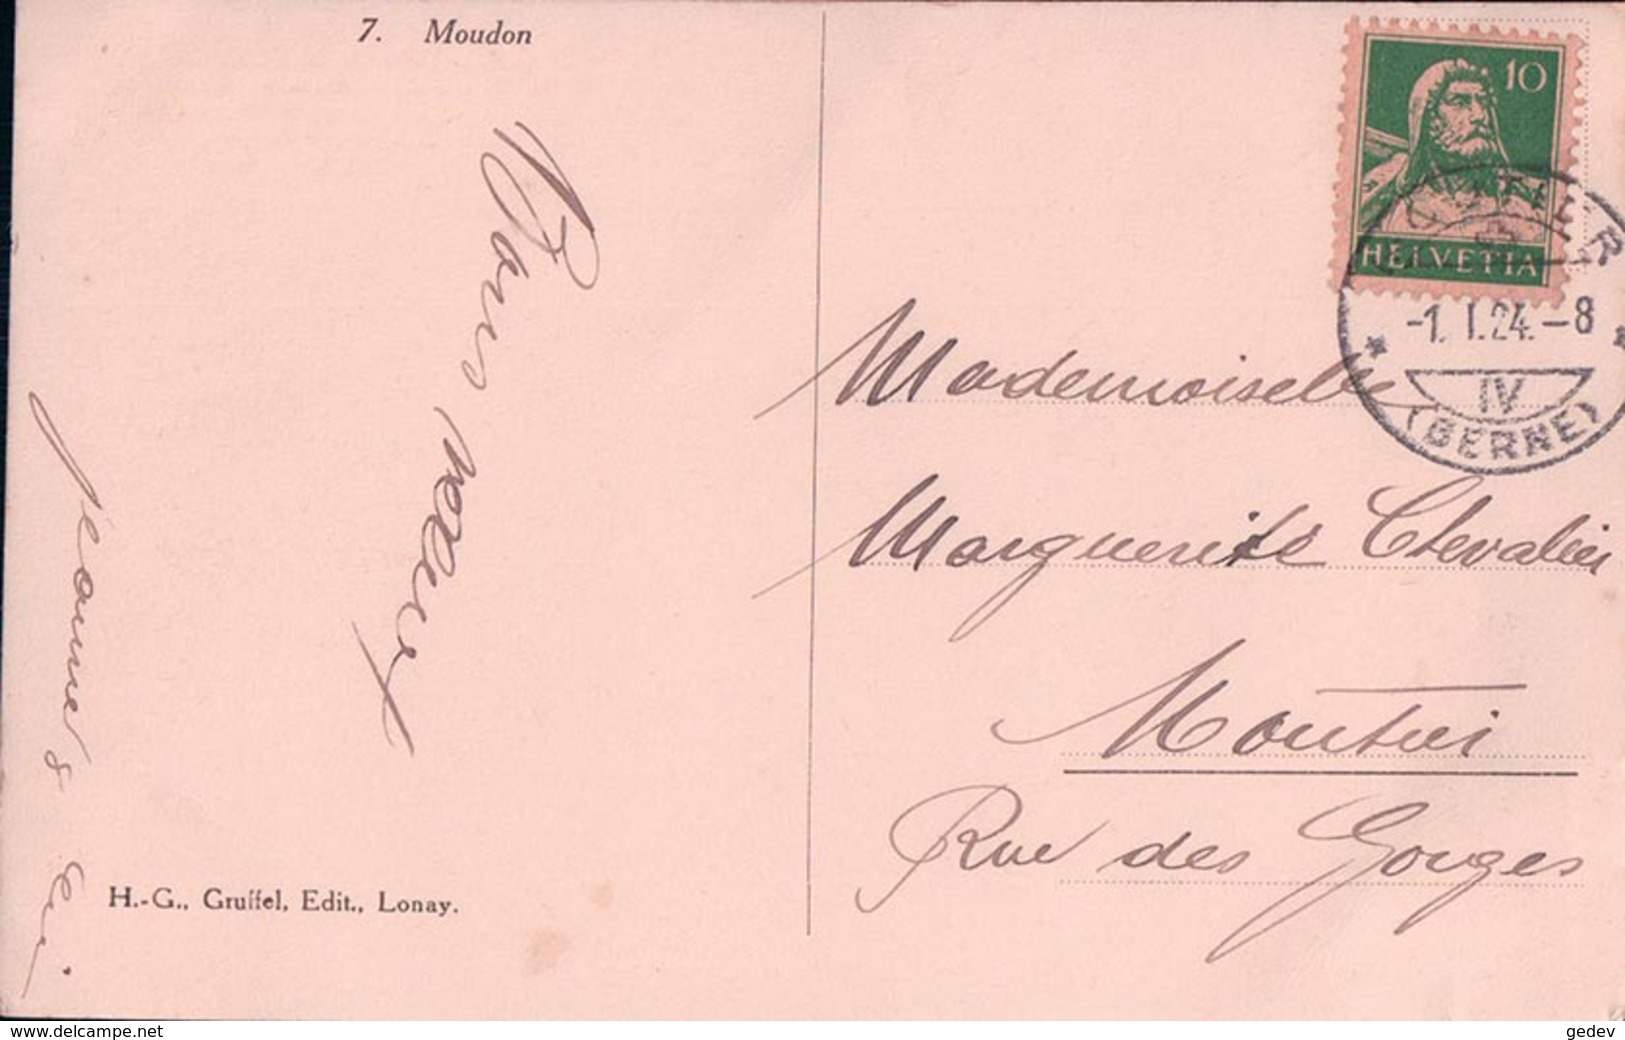 7. Moudon
Bons vœux
Jeanne &
H.-G., Gruffel, Edit., Lonay.
10
HELVETIA
-1. I. 24.-8
IV
(BERNE)
Mademoiselle
Marguerite Chevalier
Moutier
Rue des Gorges
www.delcampe.net
gedev